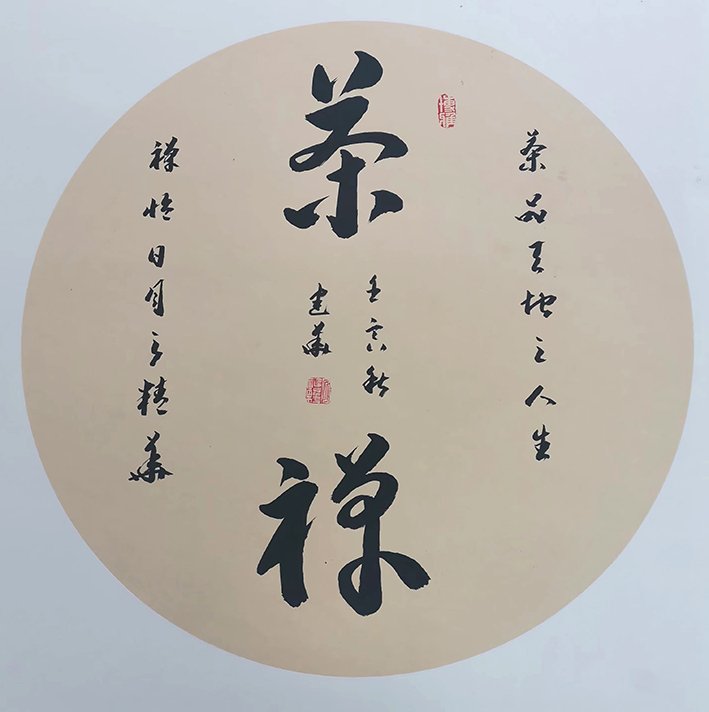 茶品天地之人生
茶禅
壬寅秋
建華
禅悟日月之精華